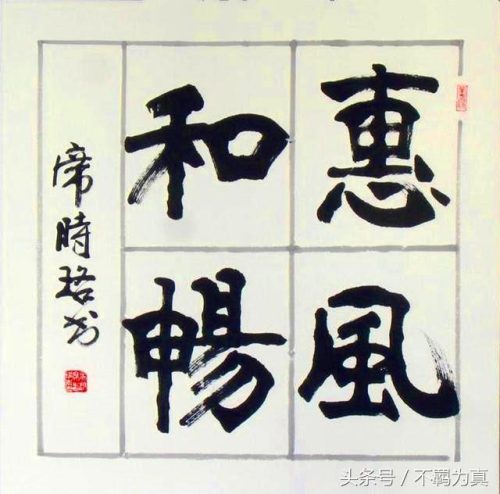 惠風
和暢
席時珞书
头条号 / 不羁为真